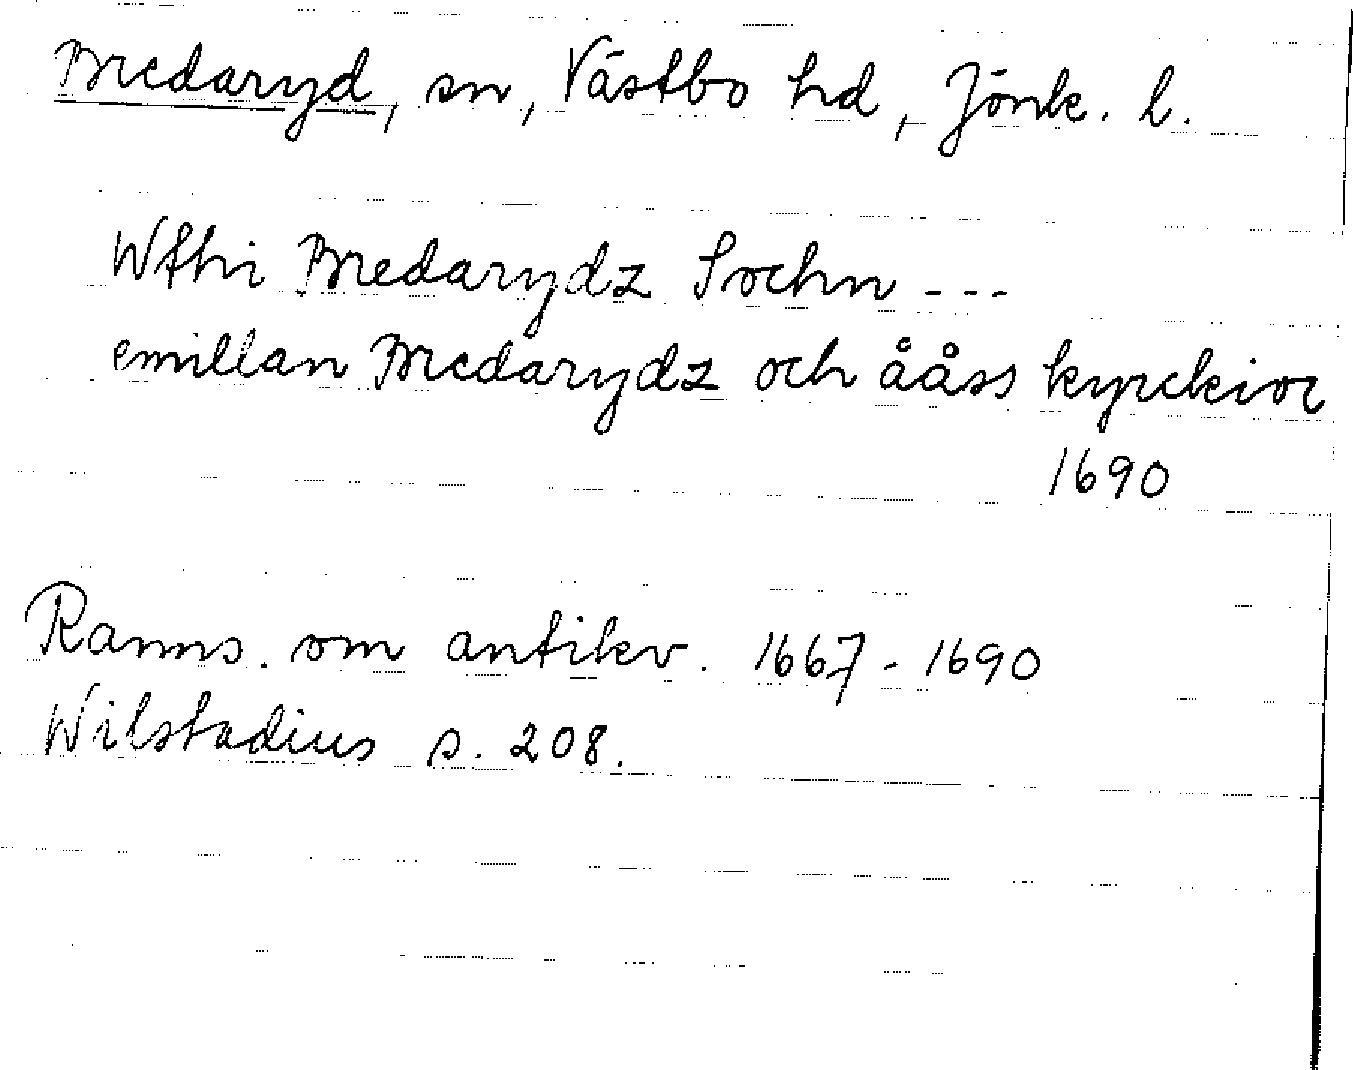 Bredaryd, sn, Västbo hd, Jönk. l.
Wthi Bredarydz Sochn ---
emillan Bredarydz och ååss kyrckior
1690
Ranns. om antikv. 1667-1690
Wilstadius s. 208.